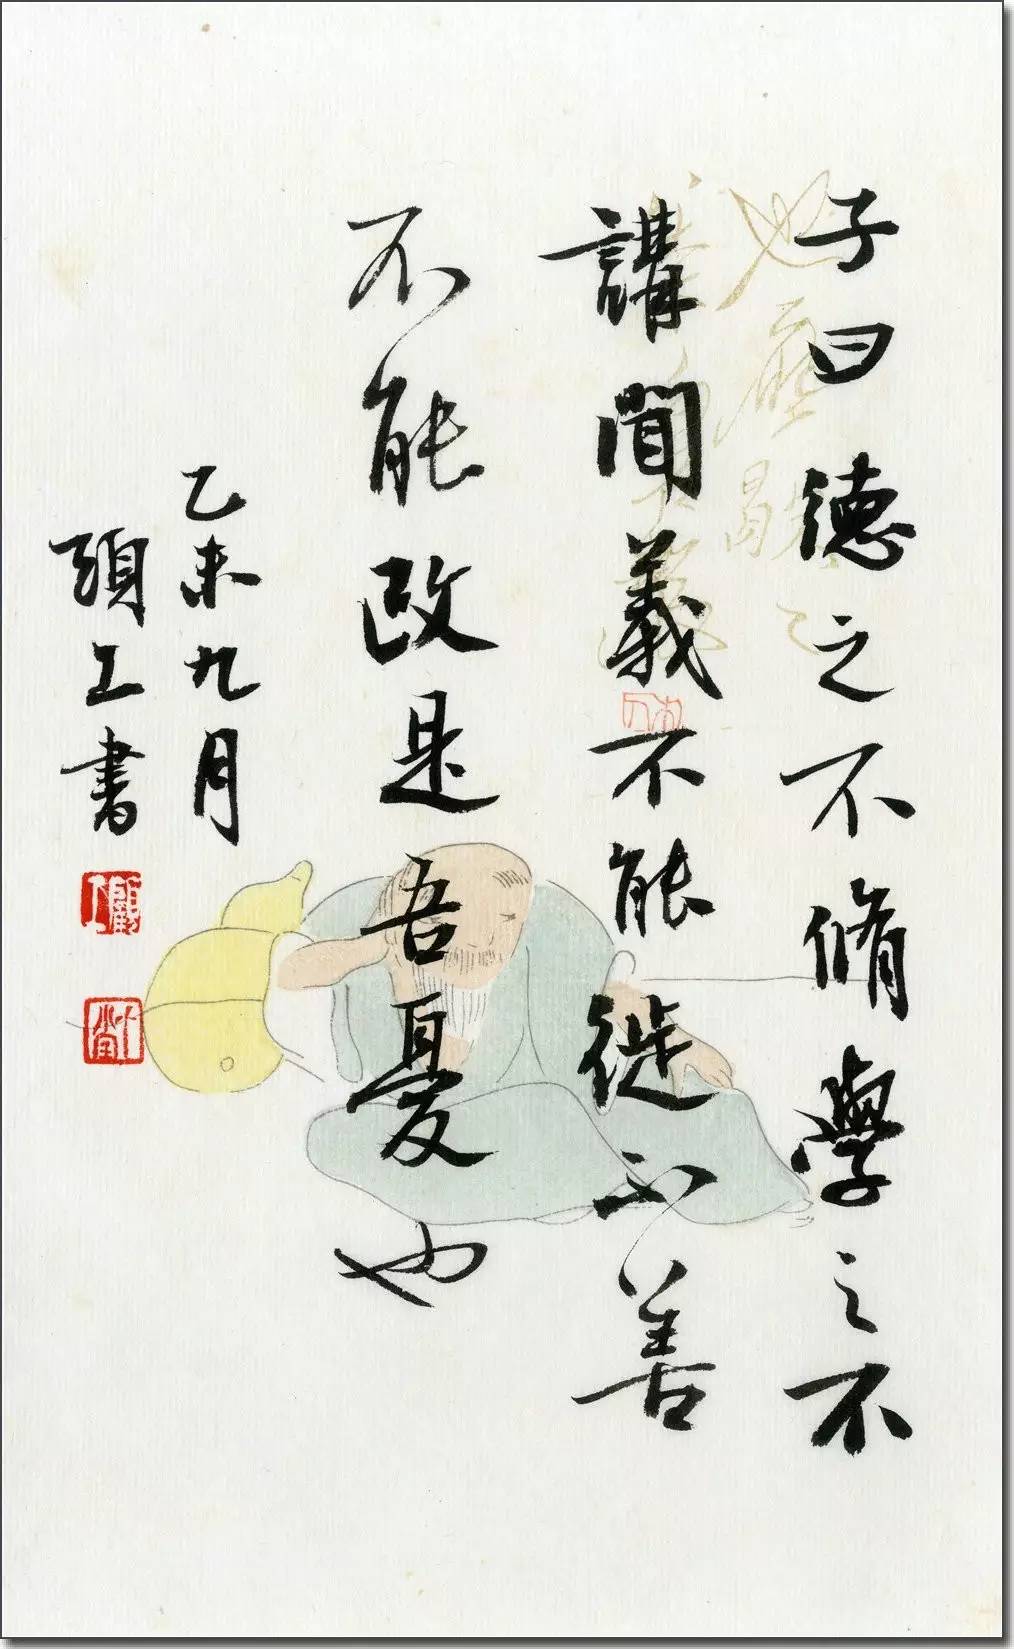 子曰德之不脩學之不
講聞義不能徙不善
不能改是吾憂也
乙未九月
頑工書